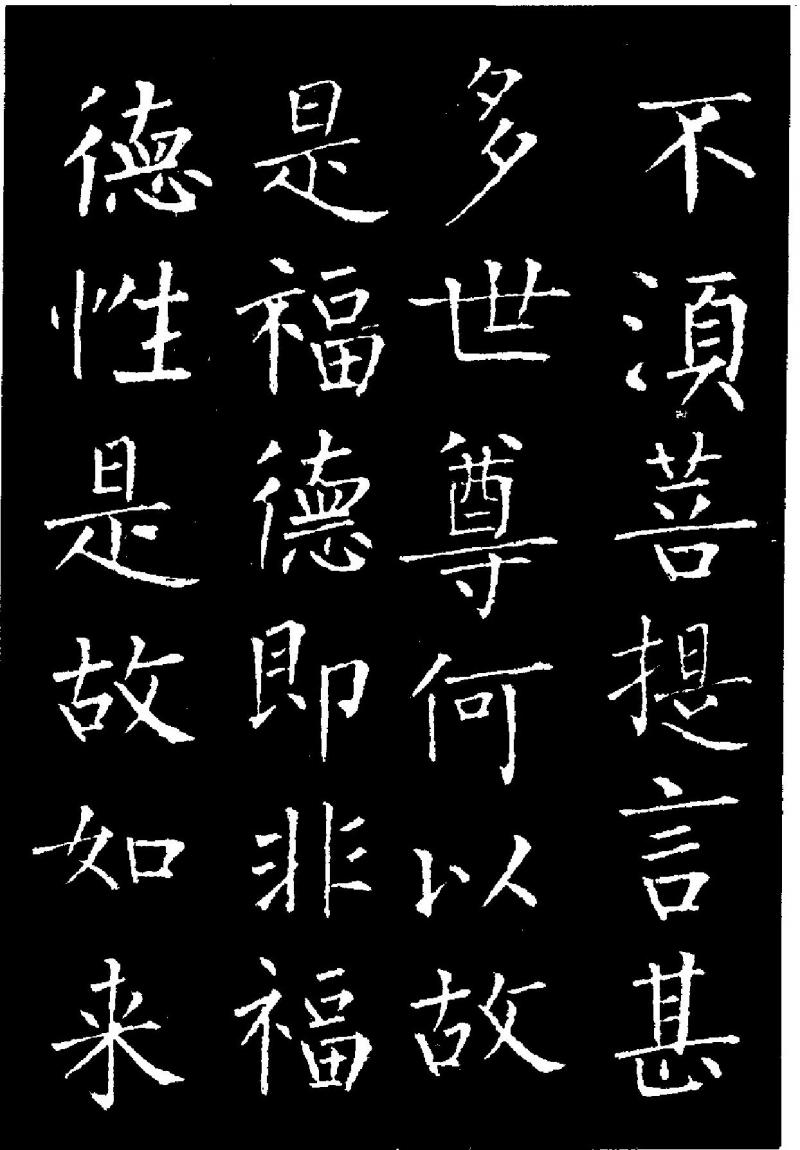 不湏菩提言甚
多世尊何以故
是福德即非福
德性是故如来